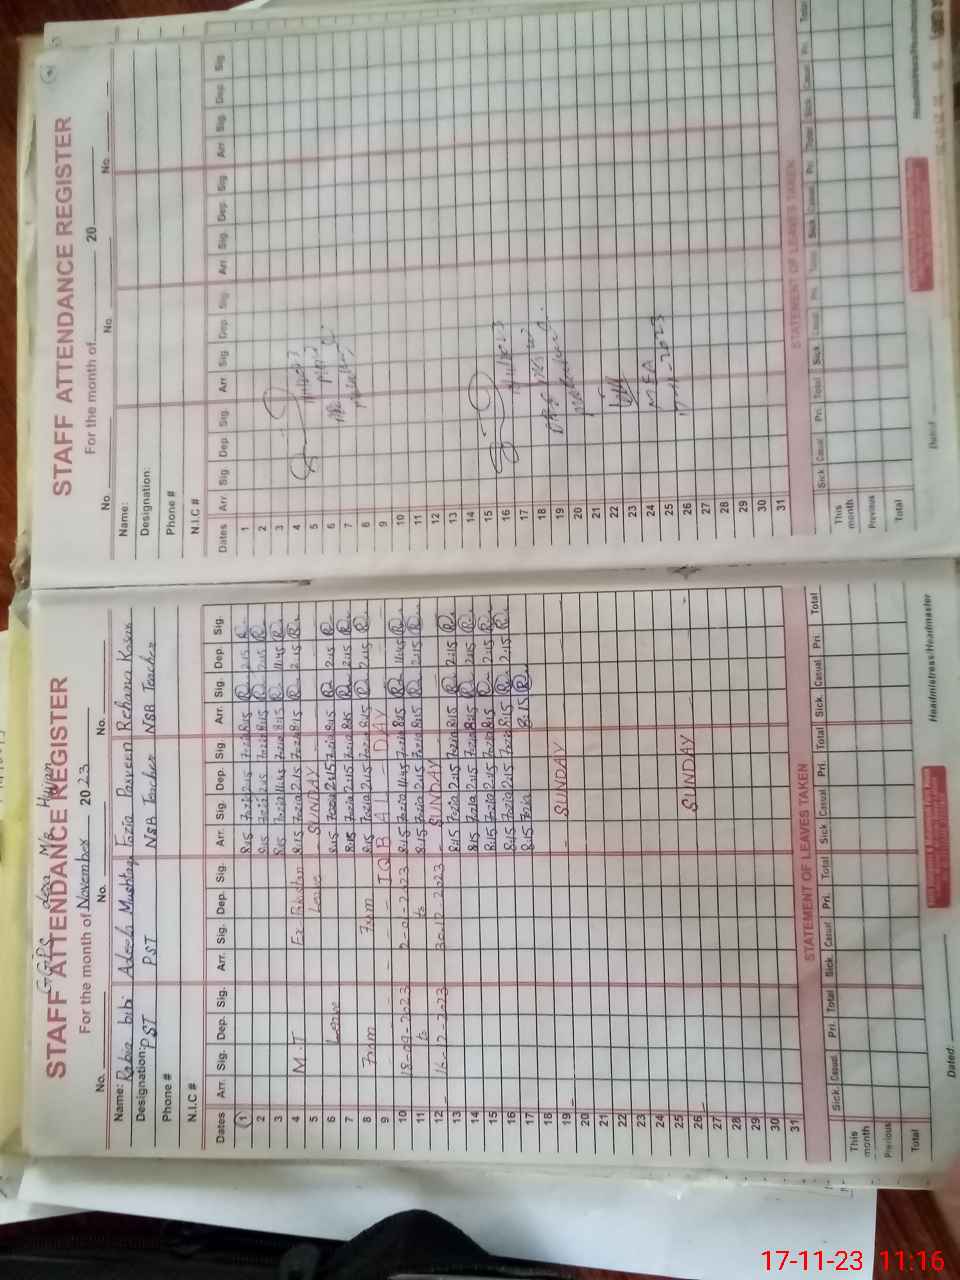 GGPS Lesa M/R Hayam
STAFF ATTENDANCE REGISTER
For the month of November 2023
No. No. No.
Name: Rabia bibi Adeela Mushtaq Fozia Parveen Rehana Kosar
Designation: PST PST NSB Teacher NSB Teacher
Phone #
N.I.C #
Dates Arr. Sig. Dep. Sig. Arr. Sig. Dep. Sig. Arr. Sig. Dep. Sig. Arr. Sig. Dep. Sig.
1 8:15 Fozia 2:15 8:15 R 2:15 R
2 8:15 Fozia 2:15 8:15 R 2:15 R
3 8:15 Fozia 11:45 Fozia 8:15 R 11:45 R
4 M.T Ex. Pakistan 8:15 Fozia 2:15 Fozia 8:15 R 2:15 R
5 Leave - SUNDAY -
6 Leave 8:15 Fozia 2:15 Fozia 8:15 R 2:15 R
7 8:15 Fozia 2:15 Fozia 8:15 R 2:15 R
8 From From 8:15 Fozia 2:15 Fozia 8:15 R 2:15 R
9 - - - IQBAL - DAY -
10 18-09-2023 8:15 Fozia 11:45 Fozia 8:15 R 11:45 R
11 to to 8:15 Fozia 2:15 Fozia 8:15 R 2:15 R
12 - 30-12-2023 - SUNDAY -
13 8:15 Fozia 2:15 Fozia 8:15 R 2:15 R
14 8:15 Fozia 2:15 Fozia 8:15 R 2:15 R
15 8:15 Fozia 2:15 Fozia 8:15 R 2:15 R
16 8:15 Fozia 2:15 Fozia 8:15 R 2:15 R
17 8:15 Fozia 8:15 R
18
19 - - SUNDAY
20
21
22
23
24
25
26 - SUNDAY -
27
28
29
30
31
STATEMENT OF LEAVES TAKEN
Sick Casual Pri. Total Sick Casual Pri. Total Sick Casual Pri. Total Sick Casual Pri. Total
This month
Previous
Total
Dated: Headmistress/Headmaster
STAFF ATTENDANCE REGISTER
For the month of 20
No. No. No.
Name:
Designation:
Phone #
N.I.C #
Dates Arr. Sig. Dep. Sig. Arr. Sig. Dep. Sig. Arr. Sig. Dep. Sig. Arr. Sig. Dep. Sig.
1
2
3
4
5
6
7
8
9
10
11
12
13
14
15
16
17
18
19
20
21
22
23
24 MEA
25
26 17-11-2023
27
28
29
30
31
STATEMENT OF LEAVES TAKEN
Sick Casual Pri. Total Sick Casual Pri. Total Sick Casual Pri. Total Sick Casual Pri. Total
This month
Previous
Total
Dated: Headmistress/Headmaster
17-11-23 11:16